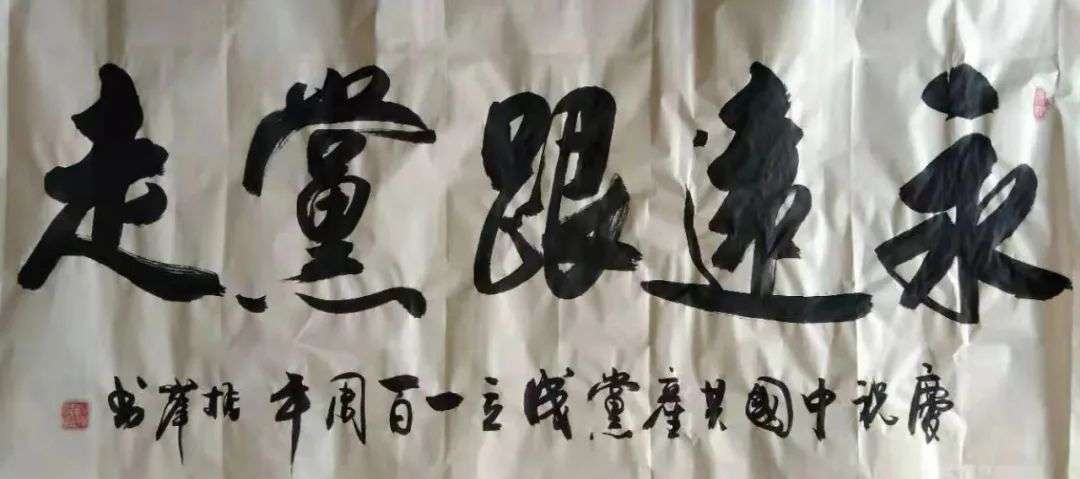 永遠跟黨走
慶祝中國共產黨成立一百周年 書